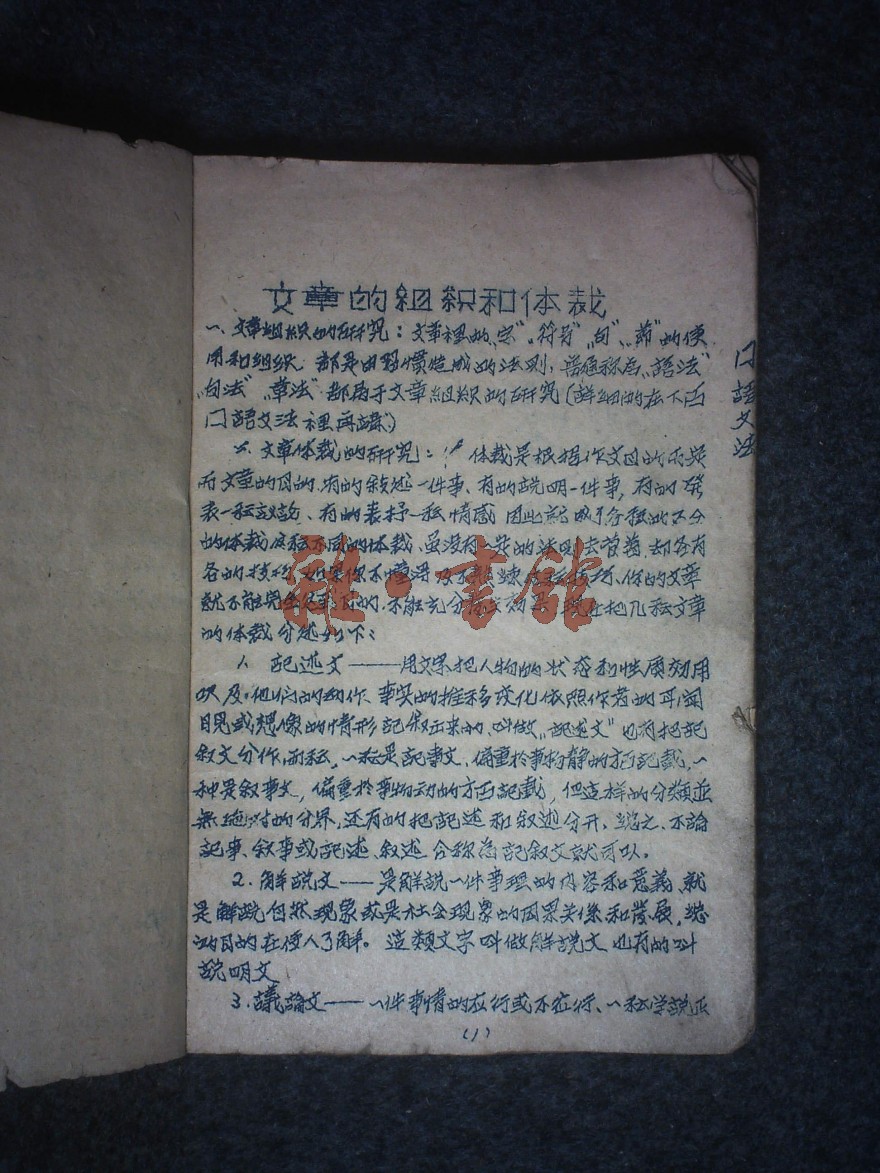 文章的組织和体裁
一、文章組织的研究：文章裡的“字”、“符号”“句”、“節”的使
用和組织 都是由習慣造成的法则，普通称為“語法”
“句法”“章法”都属于文章組织的研究（詳細的在下面
口語文法裡再講）
口語文法
二、文章体裁的研究： 体裁是根据作文目的而異
而文章的目的，有的敘述一件事、有的説明一件事，有的發
表一种議論、有的表抒一种情感 因此就成了各种的不同
的体裁 这种不同的体裁 虽没有一定的法则去管着 却各有
各的技巧 如果你不懂得 你的文章
就不能完全达到目的，不能充分 現在把几种文章
的体裁分述如下：
1、記述文——用文字把人物的状态和性质効用
以及他们的动作、事实的推移变化依照作者的耳闻
目見或想像的情形記敘出来的、叫做“記述文”也有把記
敘文分作两种，一种是記事文、偏重於事物静的方面記載，一
种是敘事文，偏重於事物动的方面記載，但这样的分類並
無绝对的分界，还有的把記述和敘述分开，總之、不論
記事、敘事或記述、敘述 合称為記敘文就可以。
2.解説文——是解説一件事理的内容和意義、就
是解説自然現象或是社会現象的因果关係和發展，總
的目的在使人了解。 這類文字叫做解説文 也有的叫
説明文
3.議論文——一件事情的应行或不应行、一种学説正
(1)
雜·書館